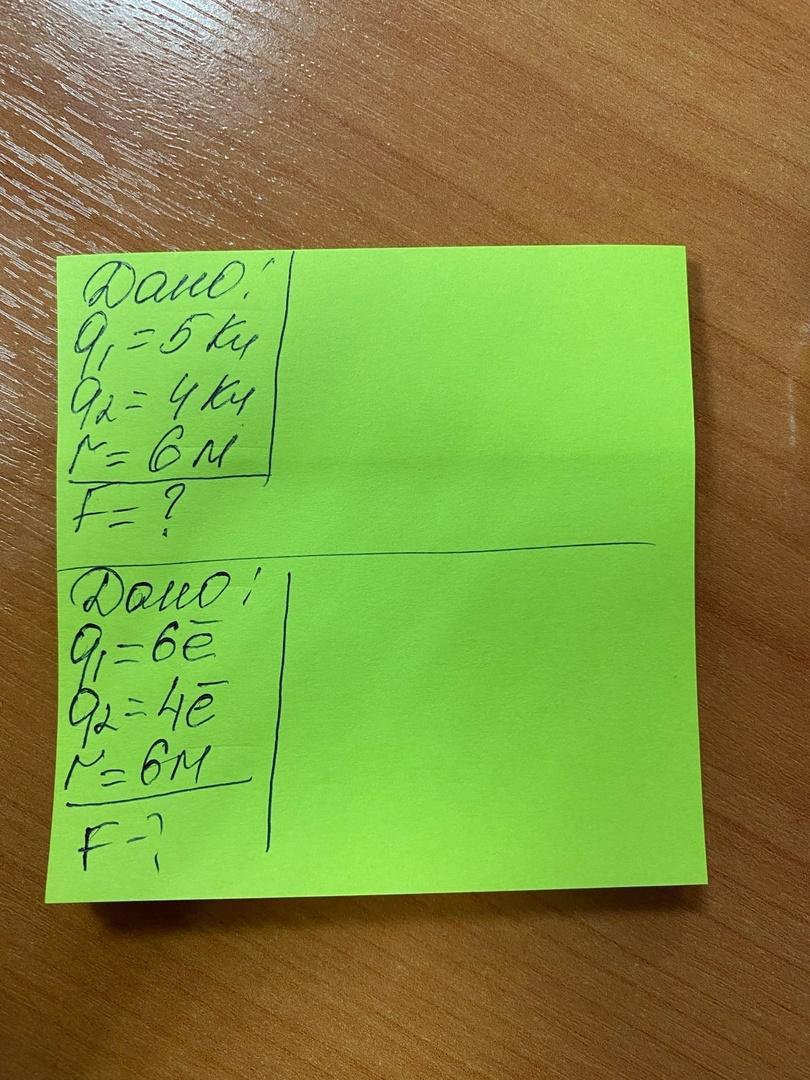 Дано:
q₁ = 5 Кл
q₂ = 4 Кл
r = 6 м
F = ?
Дано:
q₁ = 6ē
q₂ = 4ē
r = 6м
F - ?